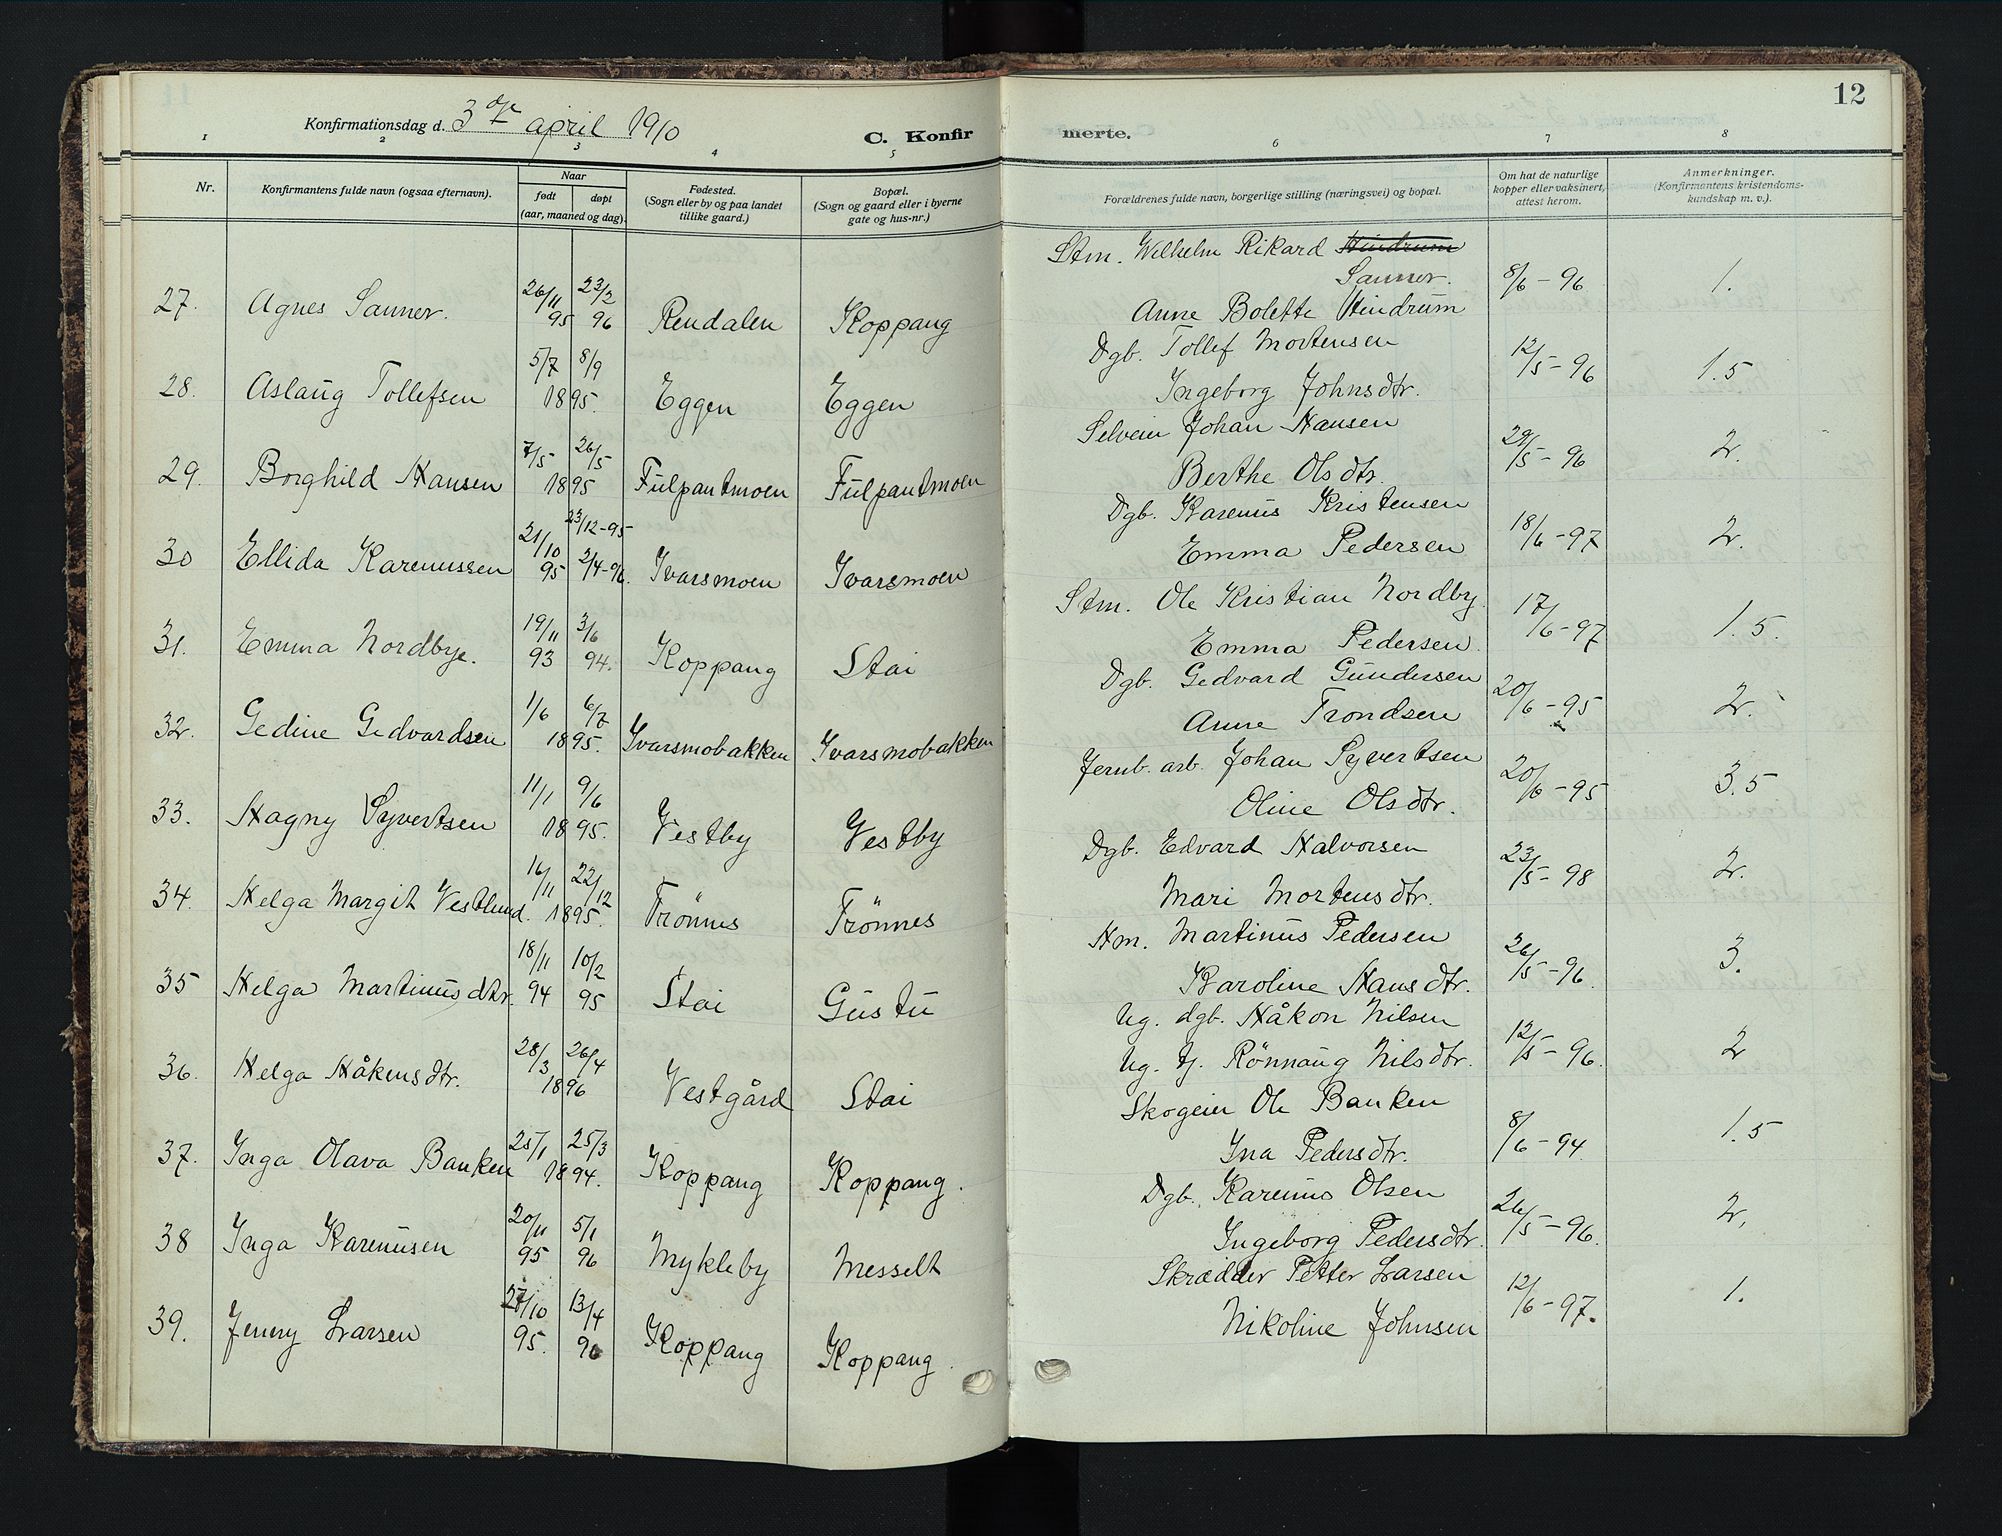 12
Konfirmationsdag d. 3die april 1910
C. Konfirmerte.
1 2 3 4 5 6 7 8
Nr. Konfirmantens fulde navn (ogsaa efternavn). Naar født døpt (aar, maaned og dag). Fødested. (Sogn eller by og paa landet tillike gaard.) Bopæl. (Sogn og gaard eller i byerne gate og hus-nr.) Forældrenes fulde navn, borgerlige stilling (næringsvei) og bopæl. Om hat de naturlige kopper eller vaksinert, attest herom. Anmerkninger. (Konfirmantens kristendomskundskap m. v.).
27. Agnes Sanner. 26/11 95 23/2 96 Rendalen Koppang Stm. Wilhelm Rikard Hindrum Sanner. 8/6-96 1.
Anne Bolette Hindrum
28. Aslaug Tollefsen 5/7 8/9 1895. Eggen Eggen Dgb. Tollef Mortensen 12/5-96 1.5
Ingeborg Johnsdtr.
29. Borghild Hansen 7/5 26/5 1895 Fulpantmoen Fulpantmoen Selveier Johan Hansen 29/5-96 2.
Berthe Olsdtr.
30 Ellida Karenussen 21/10 95 23/12-95 2/4-96. Ivarsmoen Ivarsmoen Dgb. Karenus Kristensen 18/6-97 2.
Emma Pedersen
31. Emma Nordbye. 19/11 93 3/6 94. Koppang Stai Stm. Ole Kristian Nordby 17/6-97 1.5.
Emma Pedersen
32. Gedine Gedvardsen 1/6 6/7 1895. Ivarsmobakken Ivarsmobakken Dgb. Gedvard Gundersen 20/6-95 2.
Anne Trondsen
33. Hagny Syvertsen 11/1 9/6 1895. Vestby Vestby Jernb. arb. Johan Syvertsen 20/6-95 3.5
Oline Olsdtr.
34. Helga Margit Vestlund. 16/11 22/12 1895. Trönnes Trönnes Dgb. Edvard Halvorsen 23/5-98 2.
Mari Mortensdtr.
35 Helga Martinusdtr. 18/11 94 10/2 95 Stai Gustu Hm. Martinus Pedersen 26/5-96 3.
Karoline Hansdtr.
36. Helga Håkensdtr. 28/3 26/4 1896 Vestgård Stai Ug. dgb. Håkon Nilsen 12/5-96. 2
Ug. tj. Rönnaug Nilsdtr.
37. Inga Olava Banken 25/1 25/3 1894. Koppang Koppang. Skogeier Ole Banken 8/6-94 1.5
Ina Pedersdtr.
38 Inga Karenusen 20/11 95 5/1 96 Mykleby Messelt Dgb. Karenus Olsen 26/5-96. 2.
Ingeborg Pedersdtr.
39. Jenny Larsen 27/10 95. 13/4 96 Koppang Koppang. Skrædder Petter Larsen 12/6-97. 1.
Nikoline Johnsen